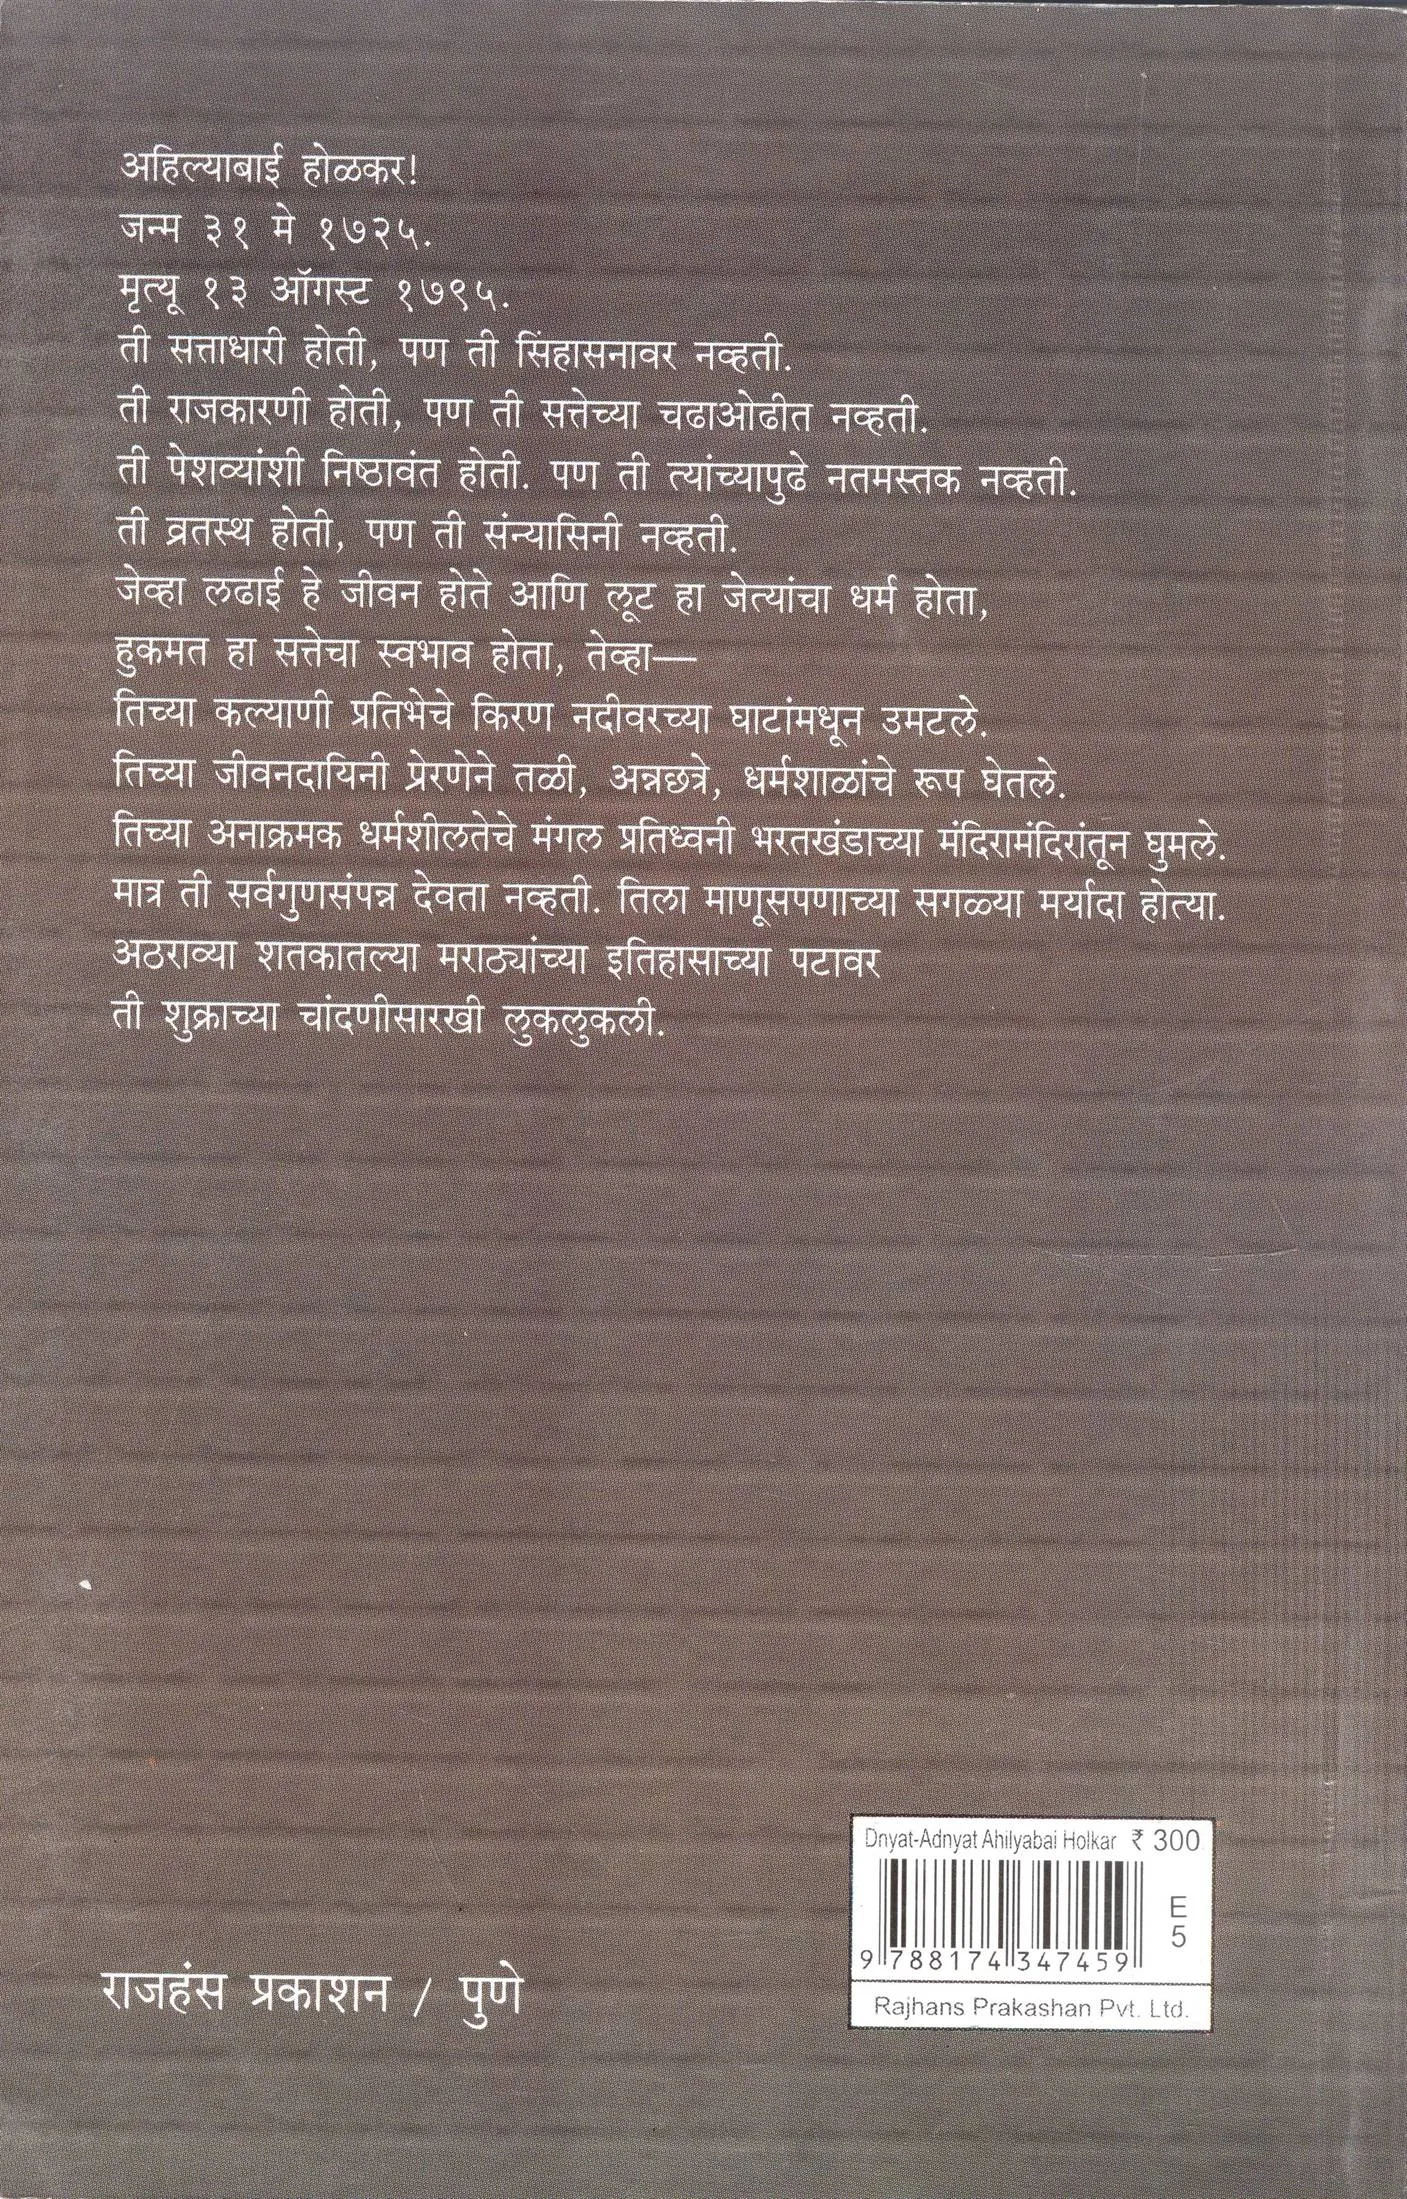 अहिल्याबाई होळकर!
जन्म ३१ मे १७२५.
मृत्यू १३ ऑगस्ट १७९५.
ती सत्ताधारी होती, पण ती सिंहासनावर नव्हती.
ती राजकारणी होती, पण ती सत्तेच्या चढाओढीत नव्हती.
ती पेशव्यांशी निष्ठावंत होती. पण ती त्यांच्यापुढे नतमस्तक नव्हती.
ती व्रतस्थ होती, पण ती संन्यासिनी नव्हती.
जेव्हा लढाई हे जीवन होते आणि लूट हा जेत्यांचा धर्म होता,
हुकमत हा सत्तेचा स्वभाव होता, तेव्हा—
तिच्या कल्याणी प्रतिभेचे किरण नदीवरच्या घाटांमधून उमटले.
तिच्या जीवनदायिनी प्रेरणेने तळी, अन्नछत्रे, धर्मशाळांचे रूप घेतले.
तिच्या अनाक्रमक धर्मशीलतेचे मंगल प्रतिध्वनी भरतखंडाच्या मंदिरामंदिरांतून घुमले.
मात्र ती सर्वगुणसंपन्न देवता नव्हती. तिला माणूसपणाच्या सगळ्या मर्यादा होत्या.
अठराव्या शतकातल्या मराठ्यांच्या इतिहासाच्या पटावर
ती शुक्राच्या चांदणीसारखी लुकलुकली.
Dnyat-Adnyat Ahilyabai Holkar ₹ 300
E
5
9 788174 347459
Rajhans Prakashan Pvt. Ltd.
राजहंस प्रकाशन / पुणे